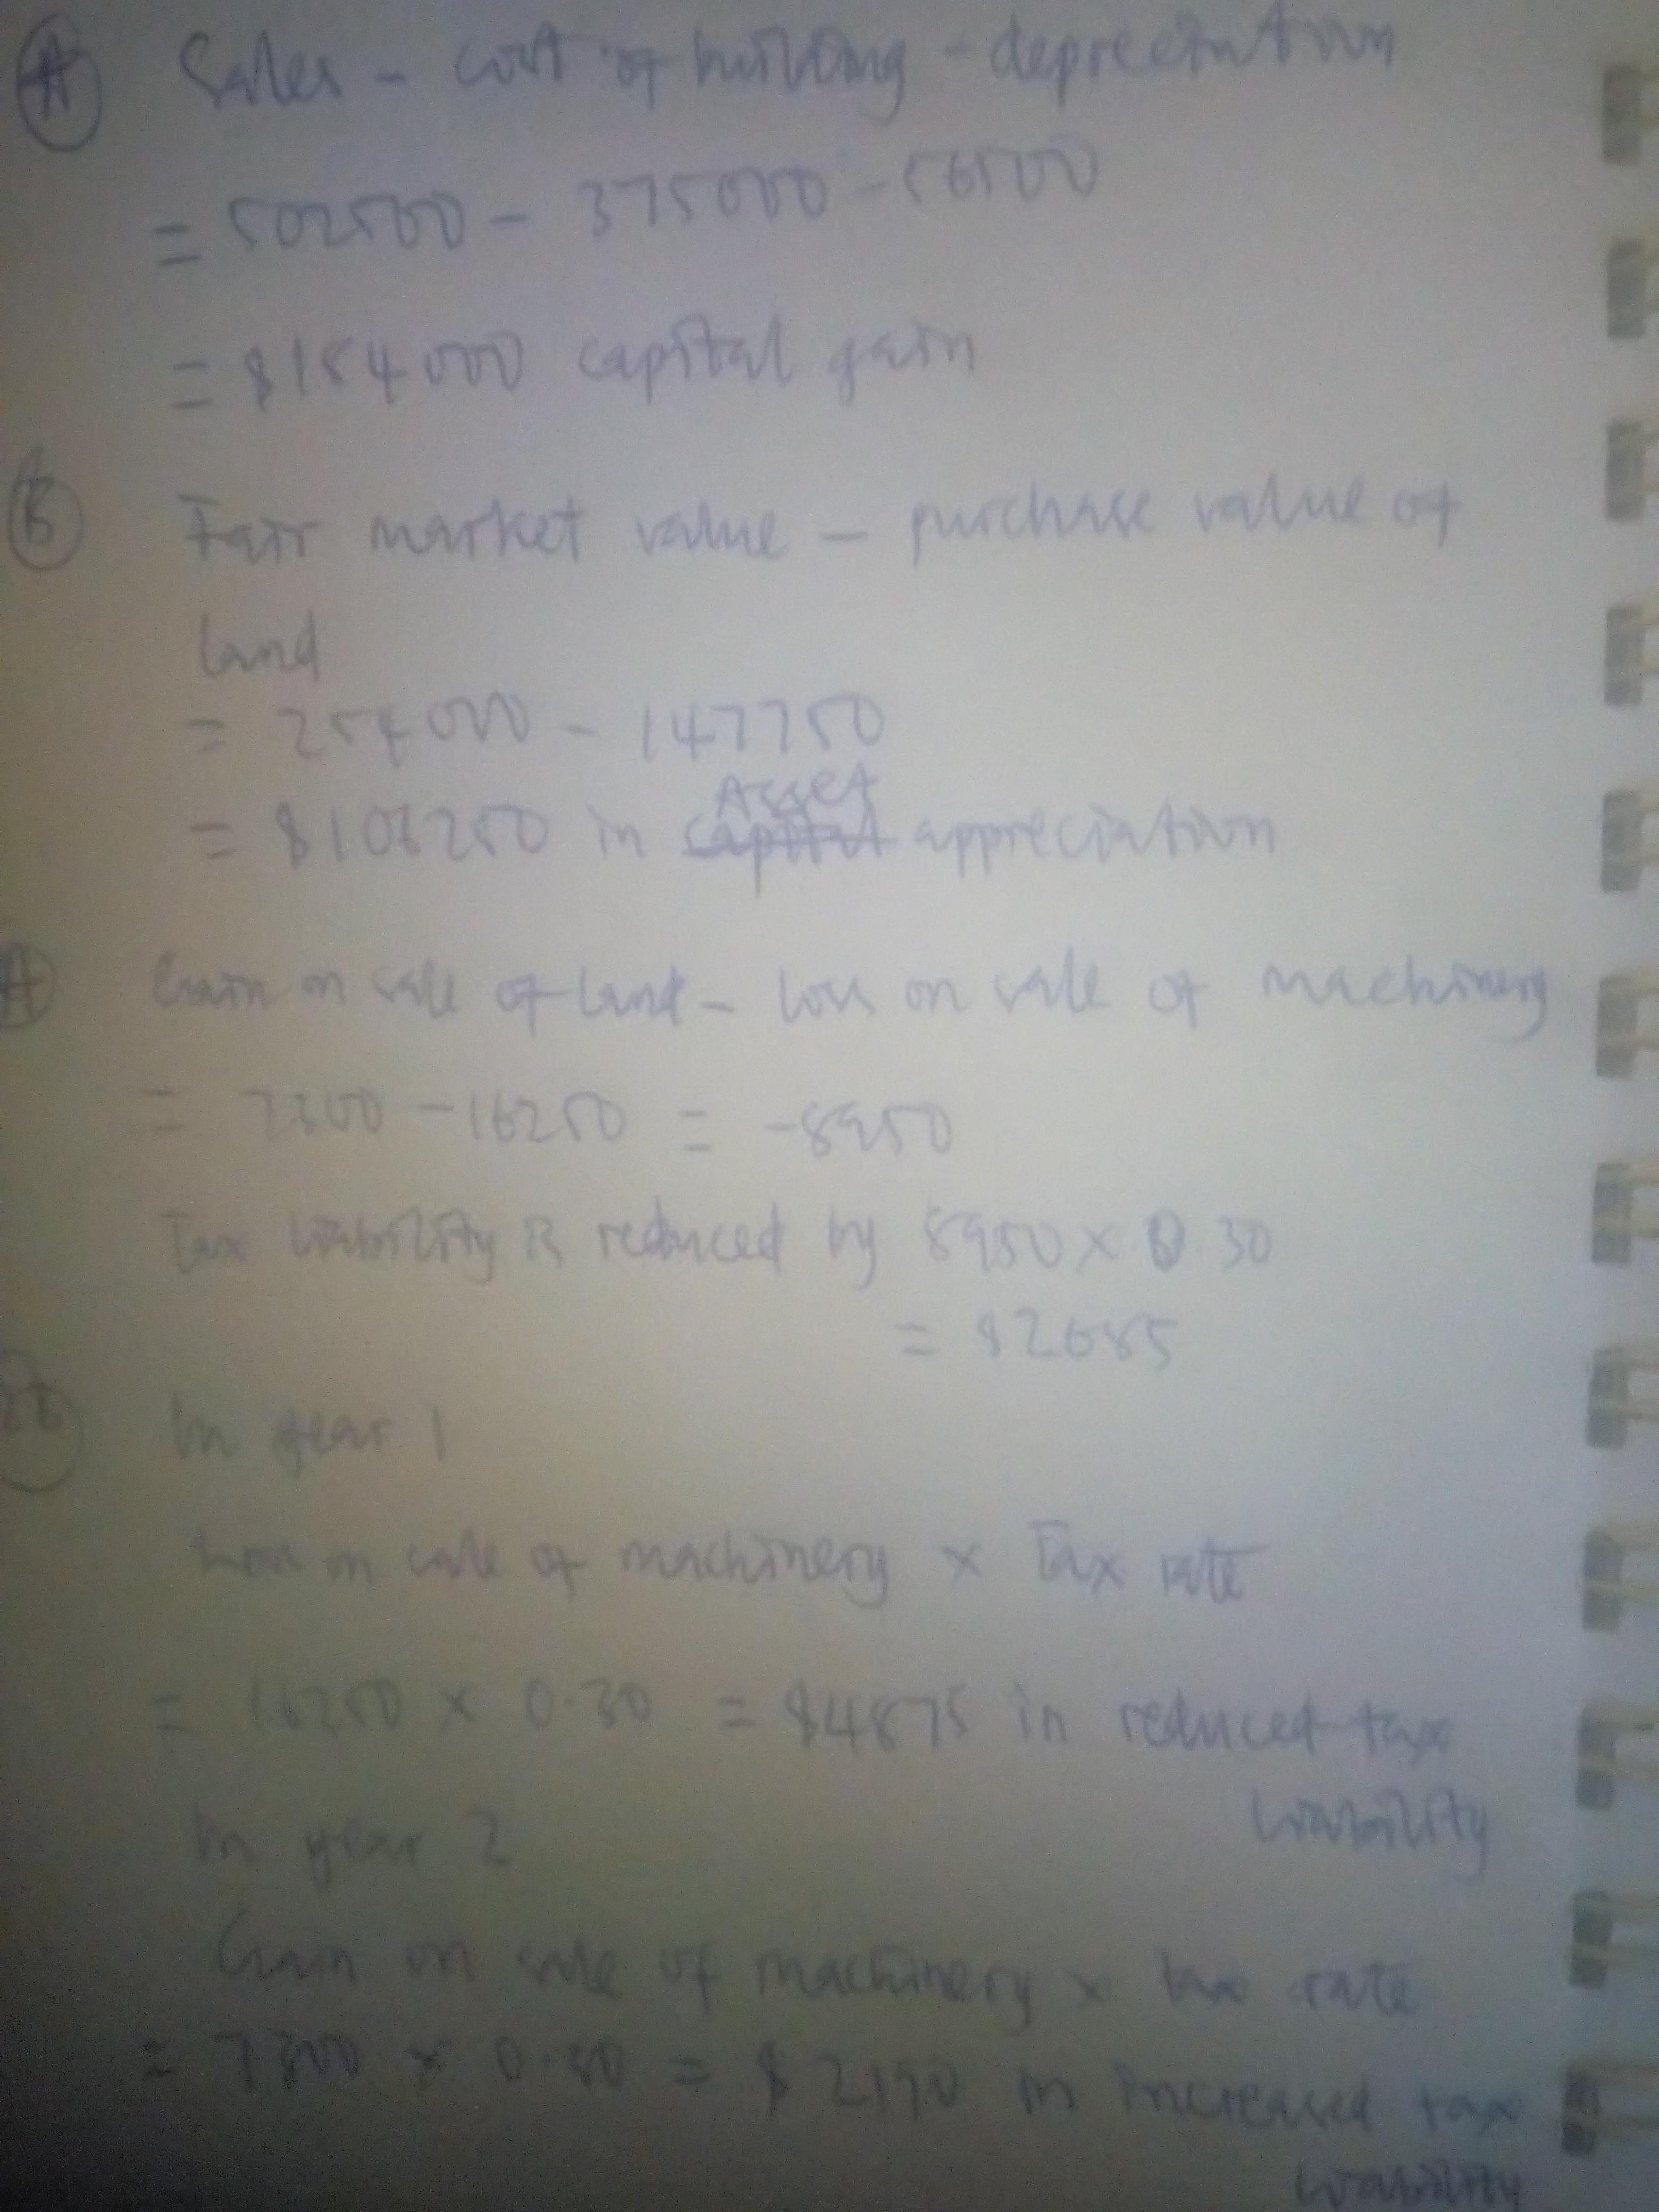 A Sales - cost of building - depreciation
= 502500 - 375000 - 56500
= $184000 capital gain
B Fair market value - purchase value of
land
= 254000 - 147750
Asset
= $106250 in capital appreciation
A Gain on sale of land - loss on sale of machinery
= 7300 - 16250 = -8950
Tax liability is reduced by 8950 x 0.30
= $2685
In year 1
Loss on sale of machinery x Tax rate
= 16250 x 0.30 = $4875 in reduced tax
liability
In year 2
Gain on sale of machinery x tax rate
= 7300 x 0.30 = $2190 in increased tax
liability